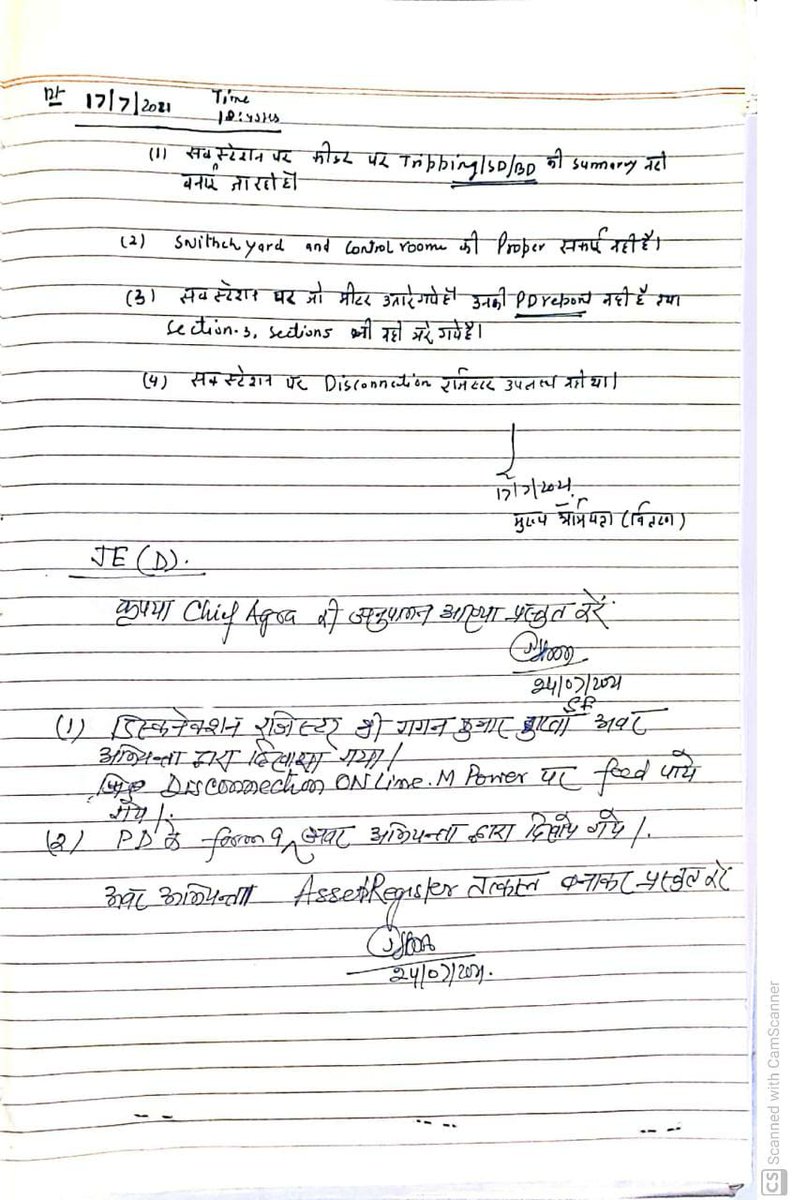 दि 17/7/2021 Time
(1) सब स्टेशन पर फीडर पर Tripping/SD/BD की summary नही
बनाई जा रही है।
(2) Snithch yard and Control room की Proper सफाई नही है।
(3) सब स्टेशन पर जो मीटर उतारे गये है उनकी PD report नही है तथा
section-3, sections भी नही भरे गये है।
(4) सब स्टेशन पर Disconnection रजिस्टर उपलब्ध नही था।
17/7/2021
मुख्य अभियंता (वितरण)
JE (D).
कृपया Chief Agra की अनुपालन आख्या प्रस्तुत करें
24/07/2021
(1) डिस्कनेक्शन रजिस्टर श्री गगन कुमार गुप्ता अवर
अभियन्ता द्वारा दिखाया गया।
Disconnection ONLine. M Power पर feed पाये
गये।
(2) PD के form 9 अवर अभियन्ता द्वारा दिखाये गये।
अवर अभियन्ता Asset Register तत्काल बनाकर प्रस्तुत करे
24/07/2021.
Scanned with CamScanner
CS